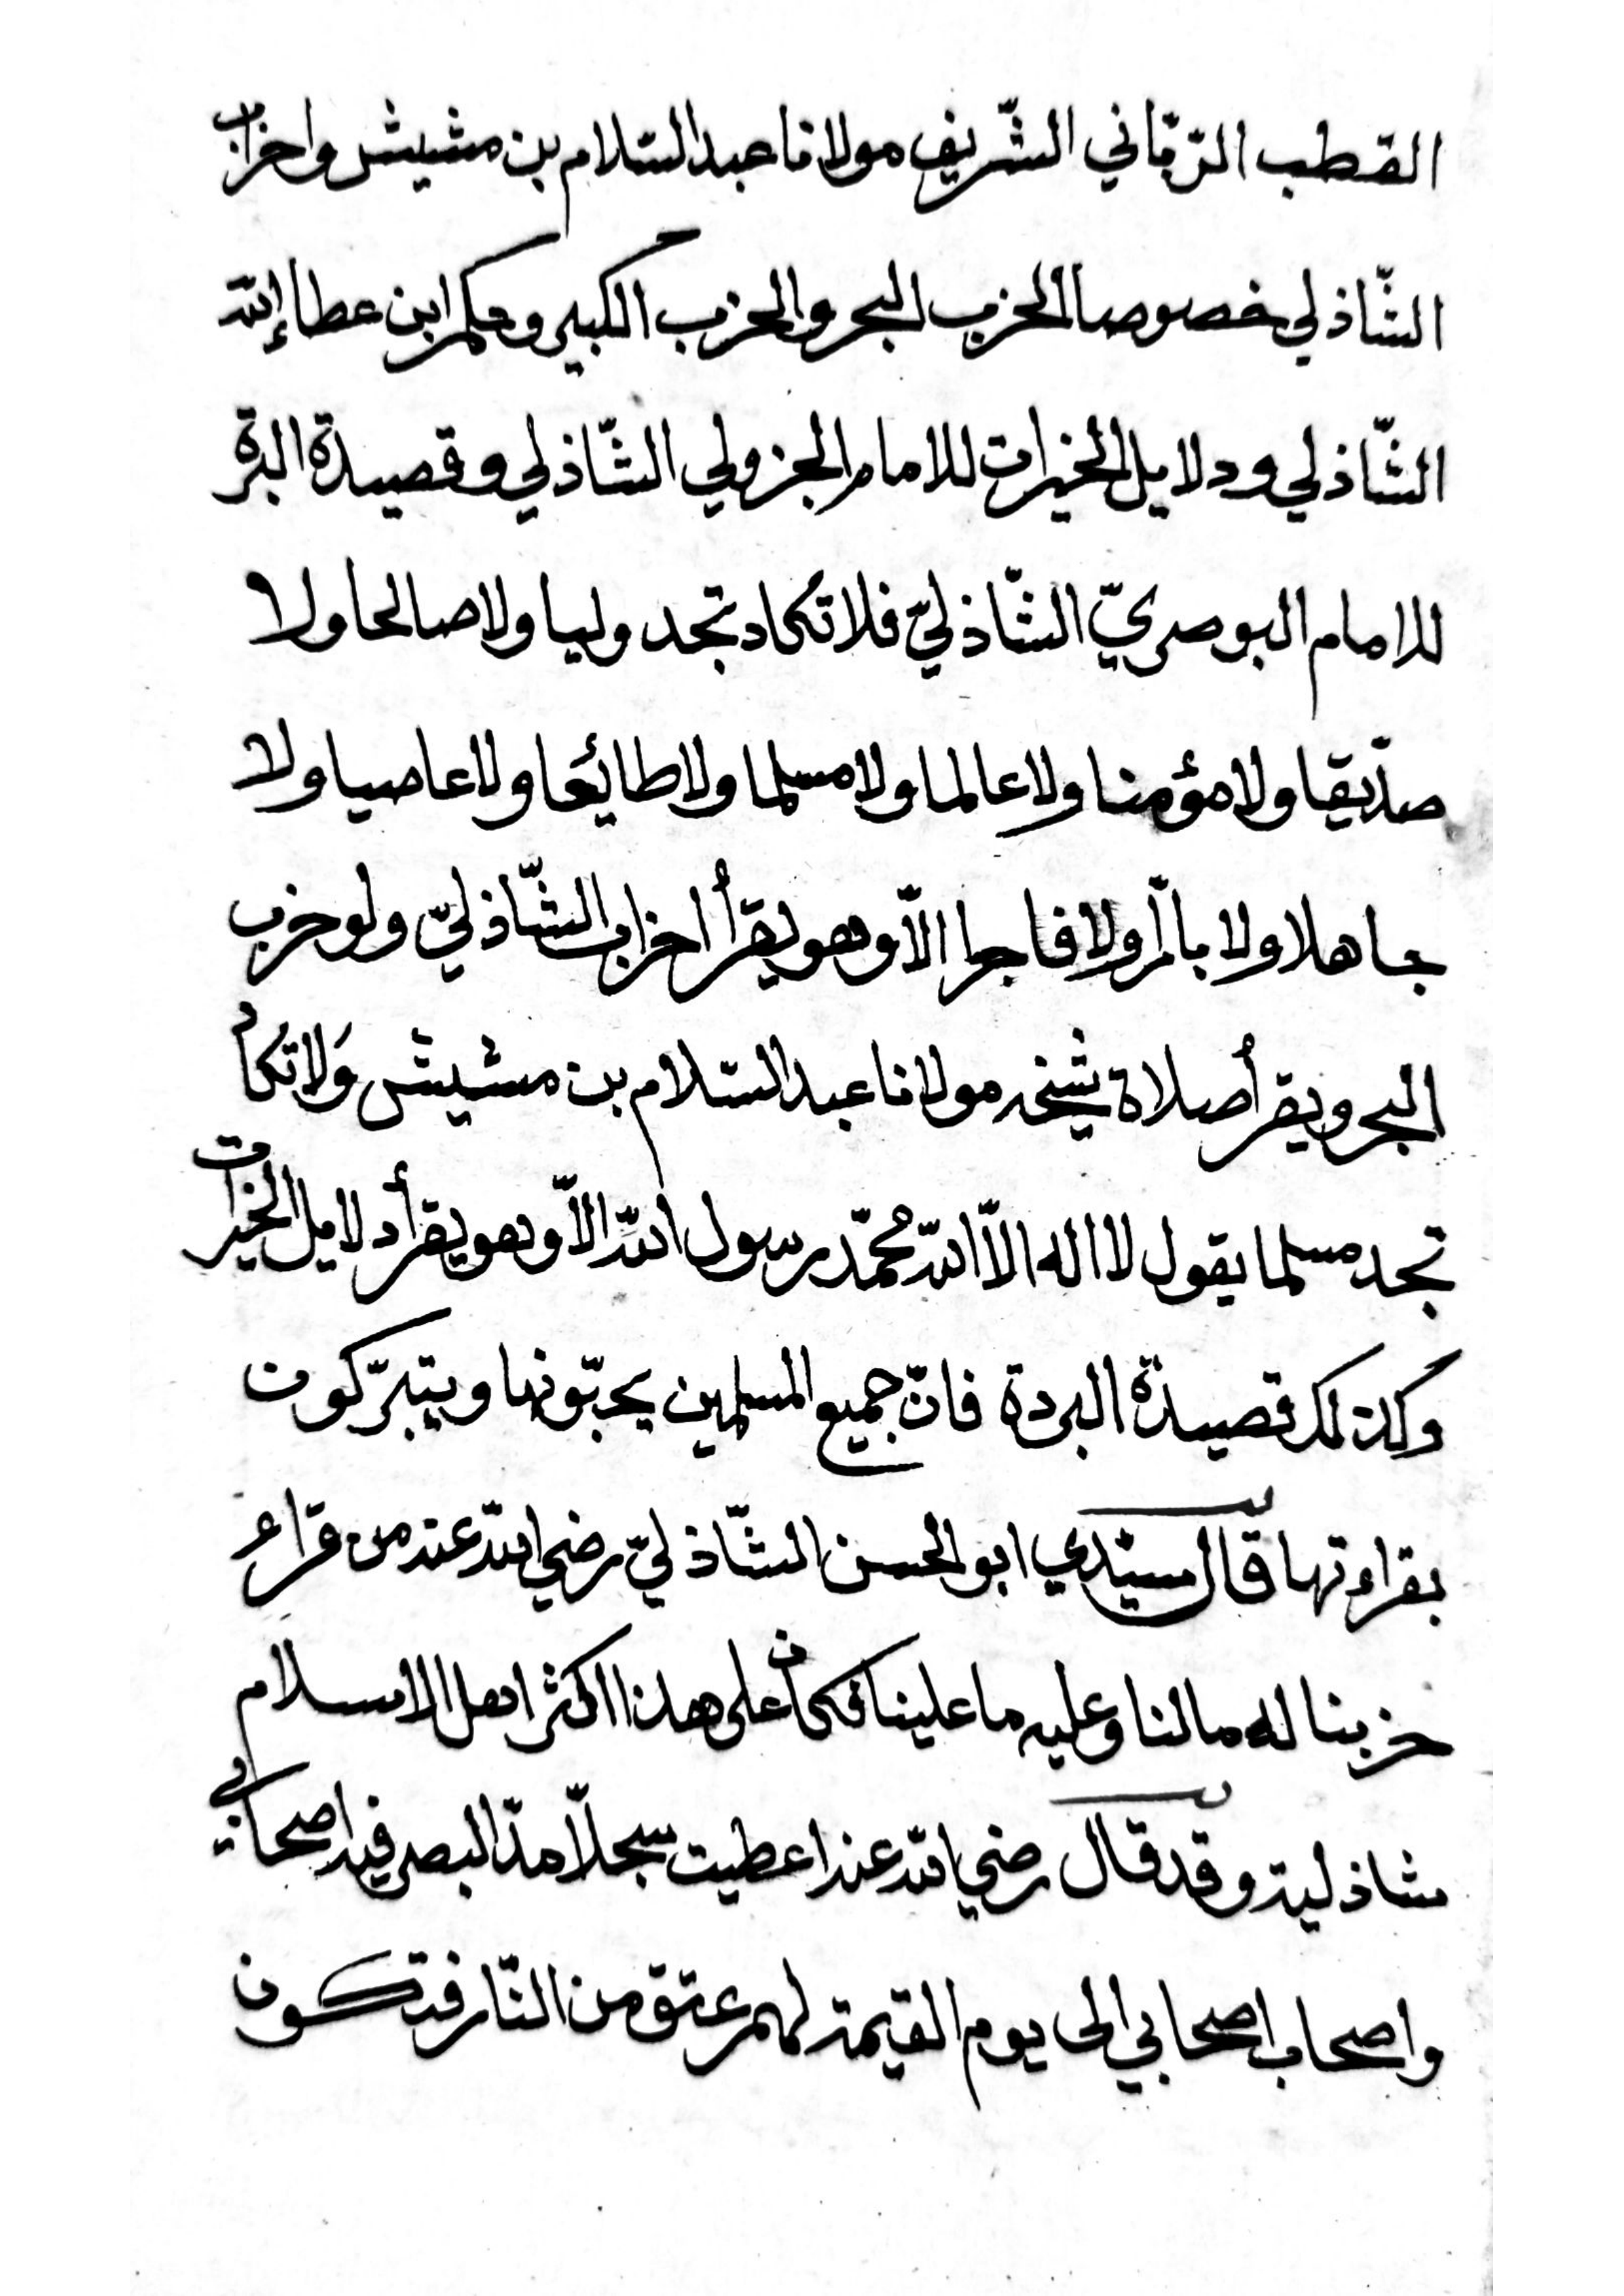 القطب الرّبّاني الشّريف مولانا عبد السّلام بن مشيش واحزاب
الشّاذلي خصوصا الحزب البحر والحزب الكبير وحكم ابن عطاء إلله
الشّاذلي ودلايل الخيرات للامام الجزولي الشّاذلي وقصيدة البردة
للامام البوصريّ الشّاذليّ فلا تكاد تجد وليا ولا صالحا ولا
صدّيقا ولا مؤمنا ولا عالما ولا مسلما ولا طائعا ولا عاصيا ولا
جاهلا ولا بارّا ولا فاجرا الاّ وهو يقرأ احزاب الشّاذليّ ولو حزب
البحر ويقرأ صلاة شيخه مولانا عبد السّلام بن مشيش وَلا تكاد
تجد مسلما يقول لا اله الاّ الله محمّد رسول الله الاّ وهو يقرأ دلايل الخيرات
وكذلك قصيدة البردة فانّ جميع المسلمين يحبّونها ويتبرّكون
بقراءتها قال سيّدي ابو الحسن الشّاذليّ رضي الله عنه من قراء
حزبنا له ما لنا وعليه ما علينا فكان على هذا اكثر اهل الاسلام
شاذلية وقد قال رضي الله عنه اعطيت سجلاّ مدّ البصر فيه اصحابي
واصحاب اصحابي الى يوم القيمة لهم عتق من النّار فتكون